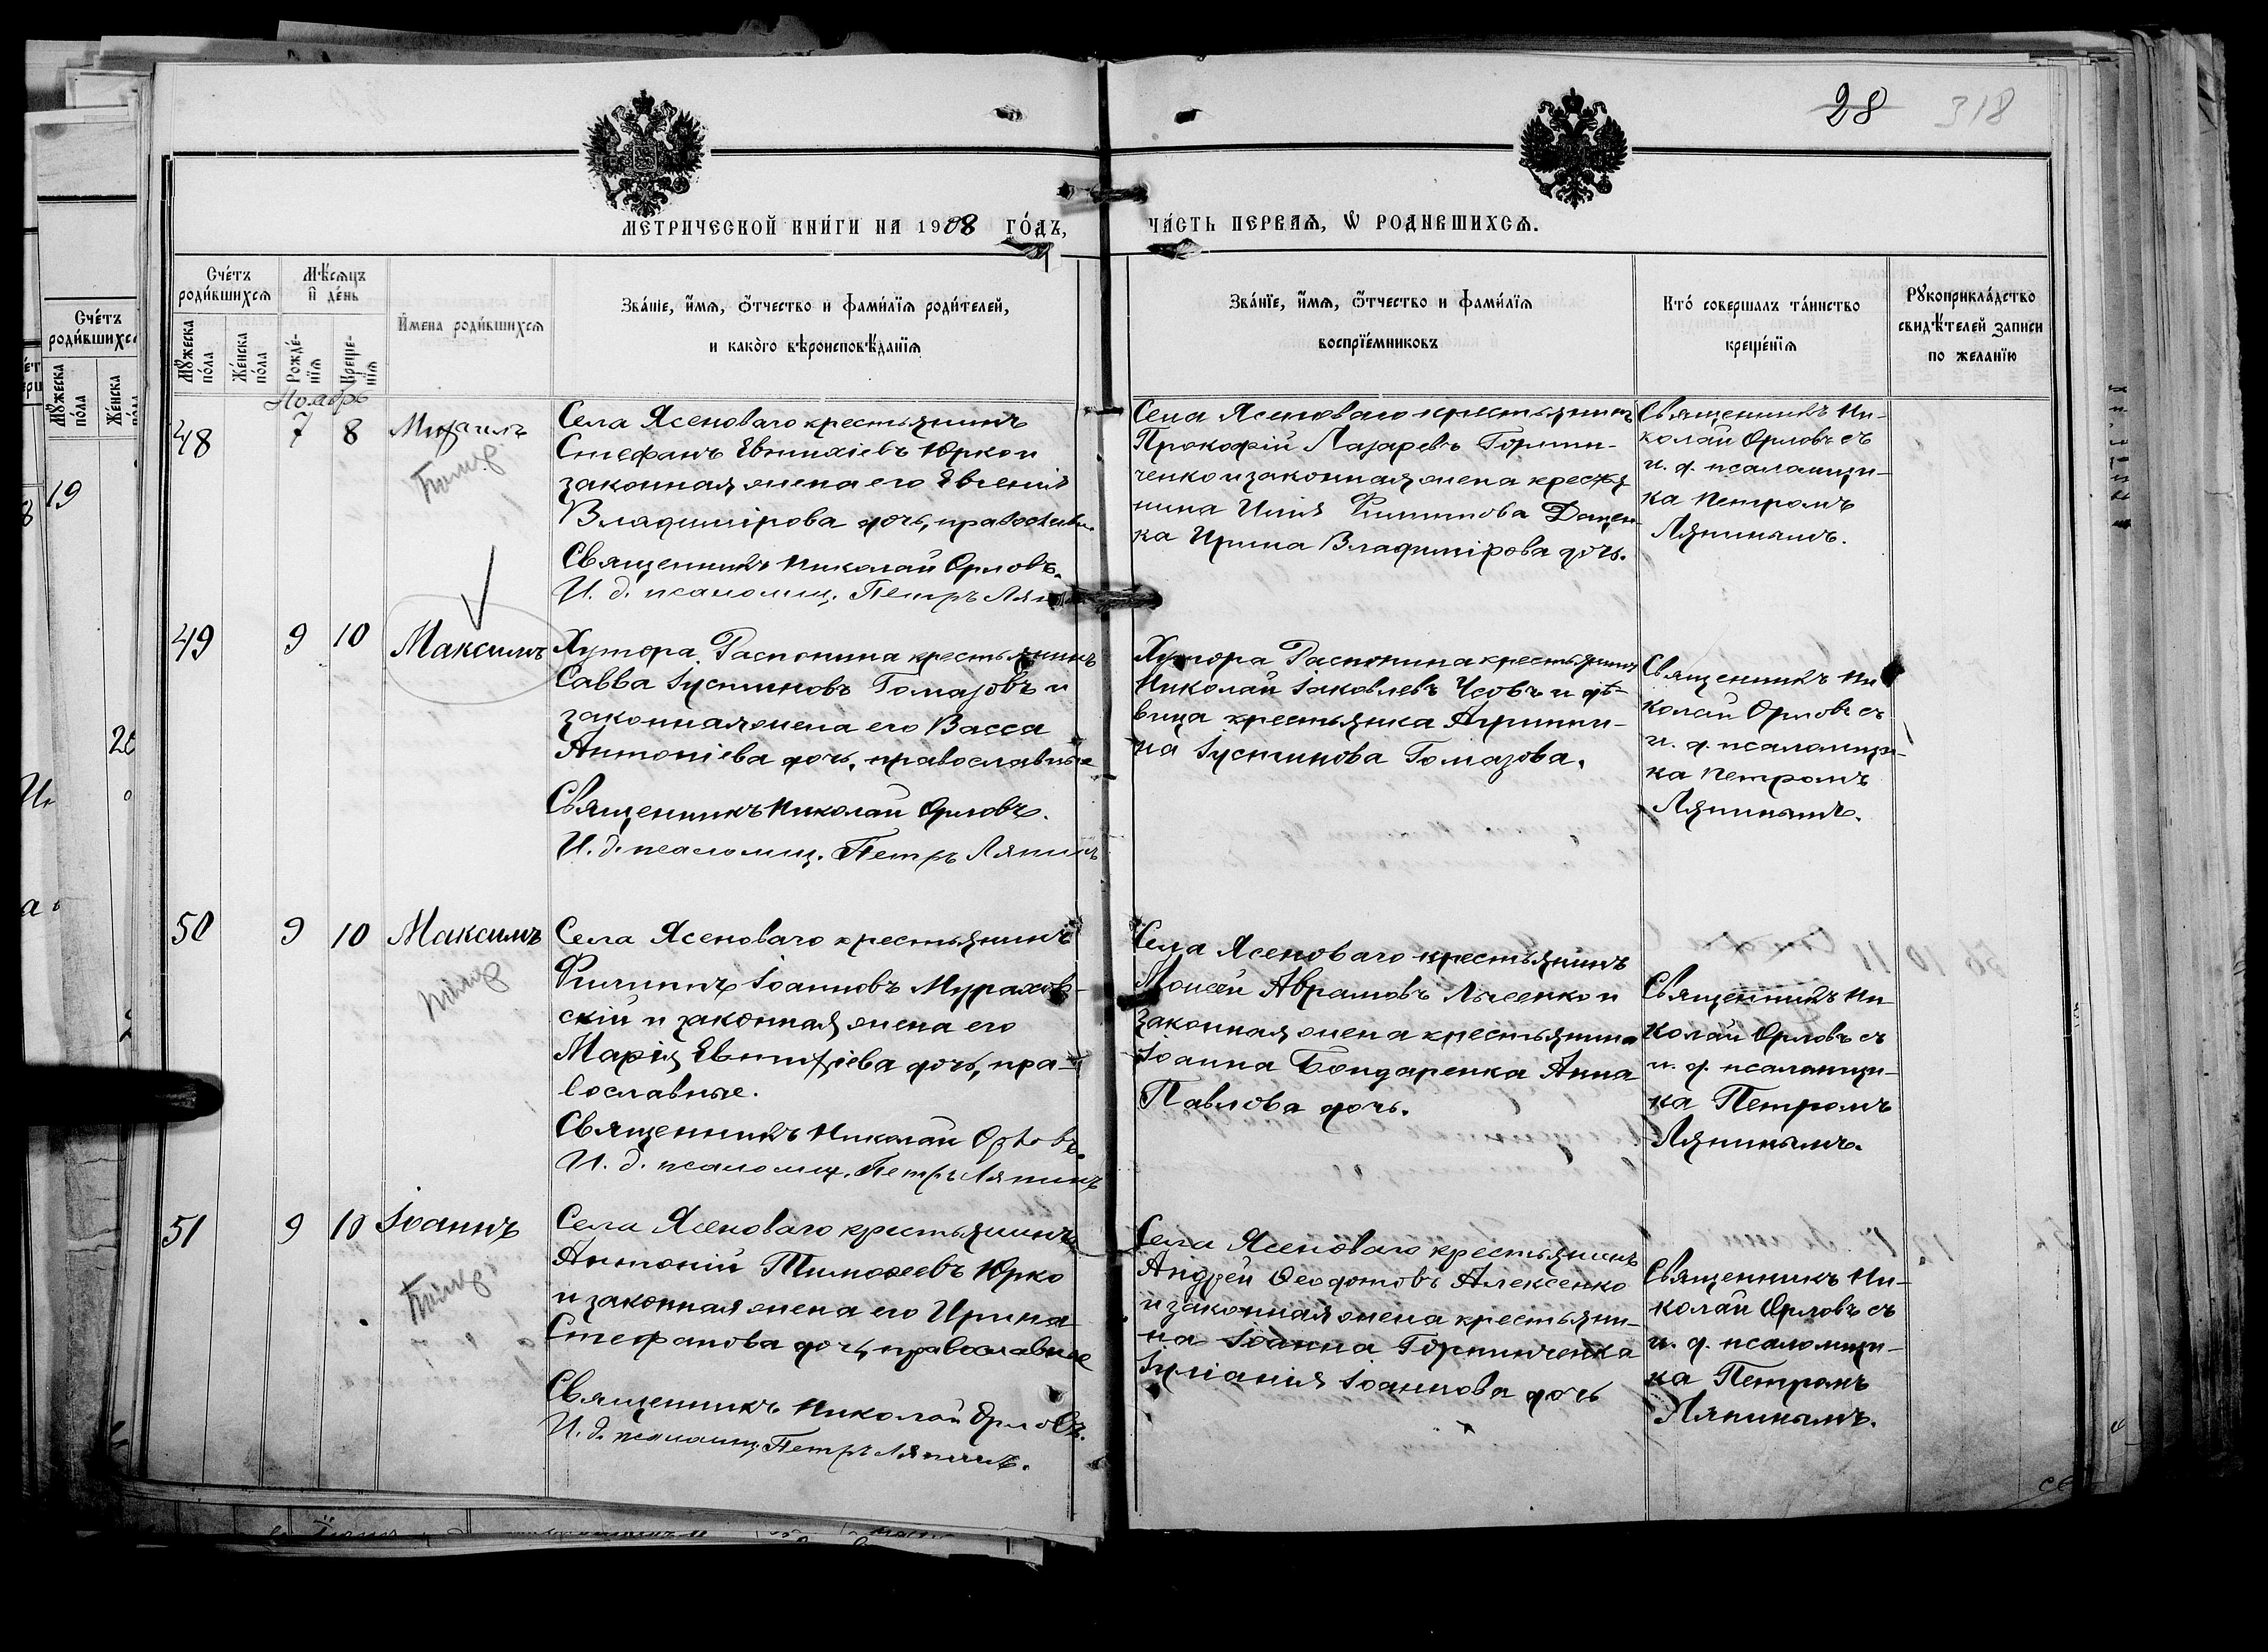 28 318
МЕТРИЧЕСКОЙ КНИ́ГИ НА 1908 ГО́ДЪ,
ЧА́СТЬ ПЕРВАѦ, Ѡ РОДИВШИХСѦ.
Сче́тъ роди́вшихсѧ
Мꙋ́жеска по́ла
Же́нска по́ла
Мѣ́сѧцъ и҆ де́нь
Рожде́-нїѧ
Креще-нїѧ
И҆мена роди́вшихсѧ
Зва́нїе, и҆́мѧ, ѻ҆́тчество и фами́лїѧ роди́телей,
и како́го вѣроисповѣ́данїѧ
Зва́нїе, и҆́мѧ, ѻ҆́тчество и фами́лїѧ
воспрїе́мниковъ
Кто́ совершалъ та́инство
креще́нїѧ
Рꙋкоприкла́дство
свидѣ́телей записи
по жела́нїю
Ноябрь
48 7 8 Михаилъ
Села Ясеноваго крестьянинъ
Стефанъ Евтихіевъ Юрко и
законная жена его Евгенія
Владимірова дочь, православн.
Священникъ Николай Орловъ.
И. д. псаломщ. Петръ Ляп
Села Ясеноваго крестьянинъ
Прокофій Лазаревъ Горпин-
ченко и законная жена крестья
нина Иліи Филиппова Доцен-
ка Ирина Владимірова дочь.
Священникъ Ни-
колай Орловъ съ
и. д. псаломщи-
ка Петромъ
Ляпинымъ.
49 9 10 Максимъ
Хутора Распопина крестьянинъ
Савва Іустиновъ Гомазовъ и
законная жена его Васса
Антоніева дочь, православные
Священникъ Николай Орловъ.
И. д. псаломщ. Петръ Ляпинъ
Хутора Распопина крестьянинъ
Николай Іаковлевъ Чеовъ и дѣ-
вица крестьянка Агриппи-
на Іустинова Гомазова.
Священникъ Ни
колай Орловъ съ
и. д. псаломщи-
ка Петромъ
Ляпинымъ.
50 9 10 Максимъ
Села Ясеноваго крестьянинъ
Филиппъ Іоанновъ Мурахов-
скій и законная жена его
Марія Евтихіева дочь, пра-
вославные.
Священникъ Николай Орловъ.
И. д. псаломщ. Петръ Ляпинъ
Села Ясеноваго крестьянинъ
Моисей Аврамовъ Лысенко и
законная жена крестьянина
Іоанна Бондаренка Анна
Павлова дочь.
Священникъ Ни-
колай Орловъ съ
и. д. псаломщи-
ка Петромъ
Ляпинымъ.
51 9 10 Іоаннъ
Села Ясеноваго крестьянинъ
Антоній Тимоѳеевъ Юрко
и законная жена его Ирина
Стефанова дочь, православные
Священникъ Николай Орловъ.
И. д. псаломщ. Петръ Ляпинъ.
Села Ясеноваго крестьянинъ
Андрей Ѳеодотовъ Алексенко
и законная жена крестьяни-
на Іоанна Горпинченка
Іуліанія Іоаннова дочь
Священникъ Ни-
колай Орловъ съ
и. д. псаломщи-
ка Петромъ
Ляпинымъ.
Сче́тъ
роди́вшихсѧ
Мꙋ́жеска по́ла
Же́нска
19